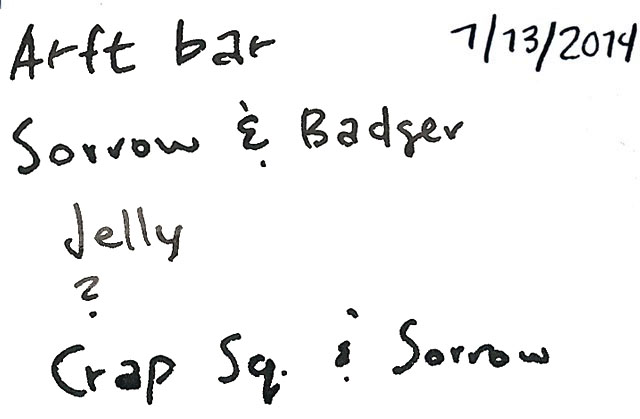 Arft bar 1/13/2014
Sorrow & Badger
Jelly
?
Crap Sq. & Sorrow